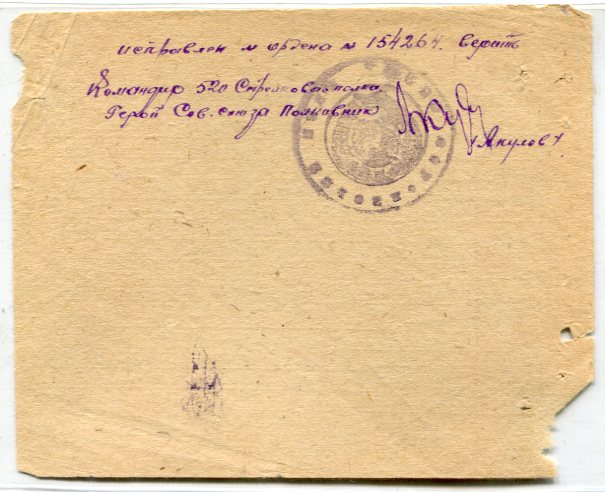 исправлен № ордена № 154264. верить
Командир 520 Стрелкового полка
Герой Сов. союза Полковник
(Акулов)